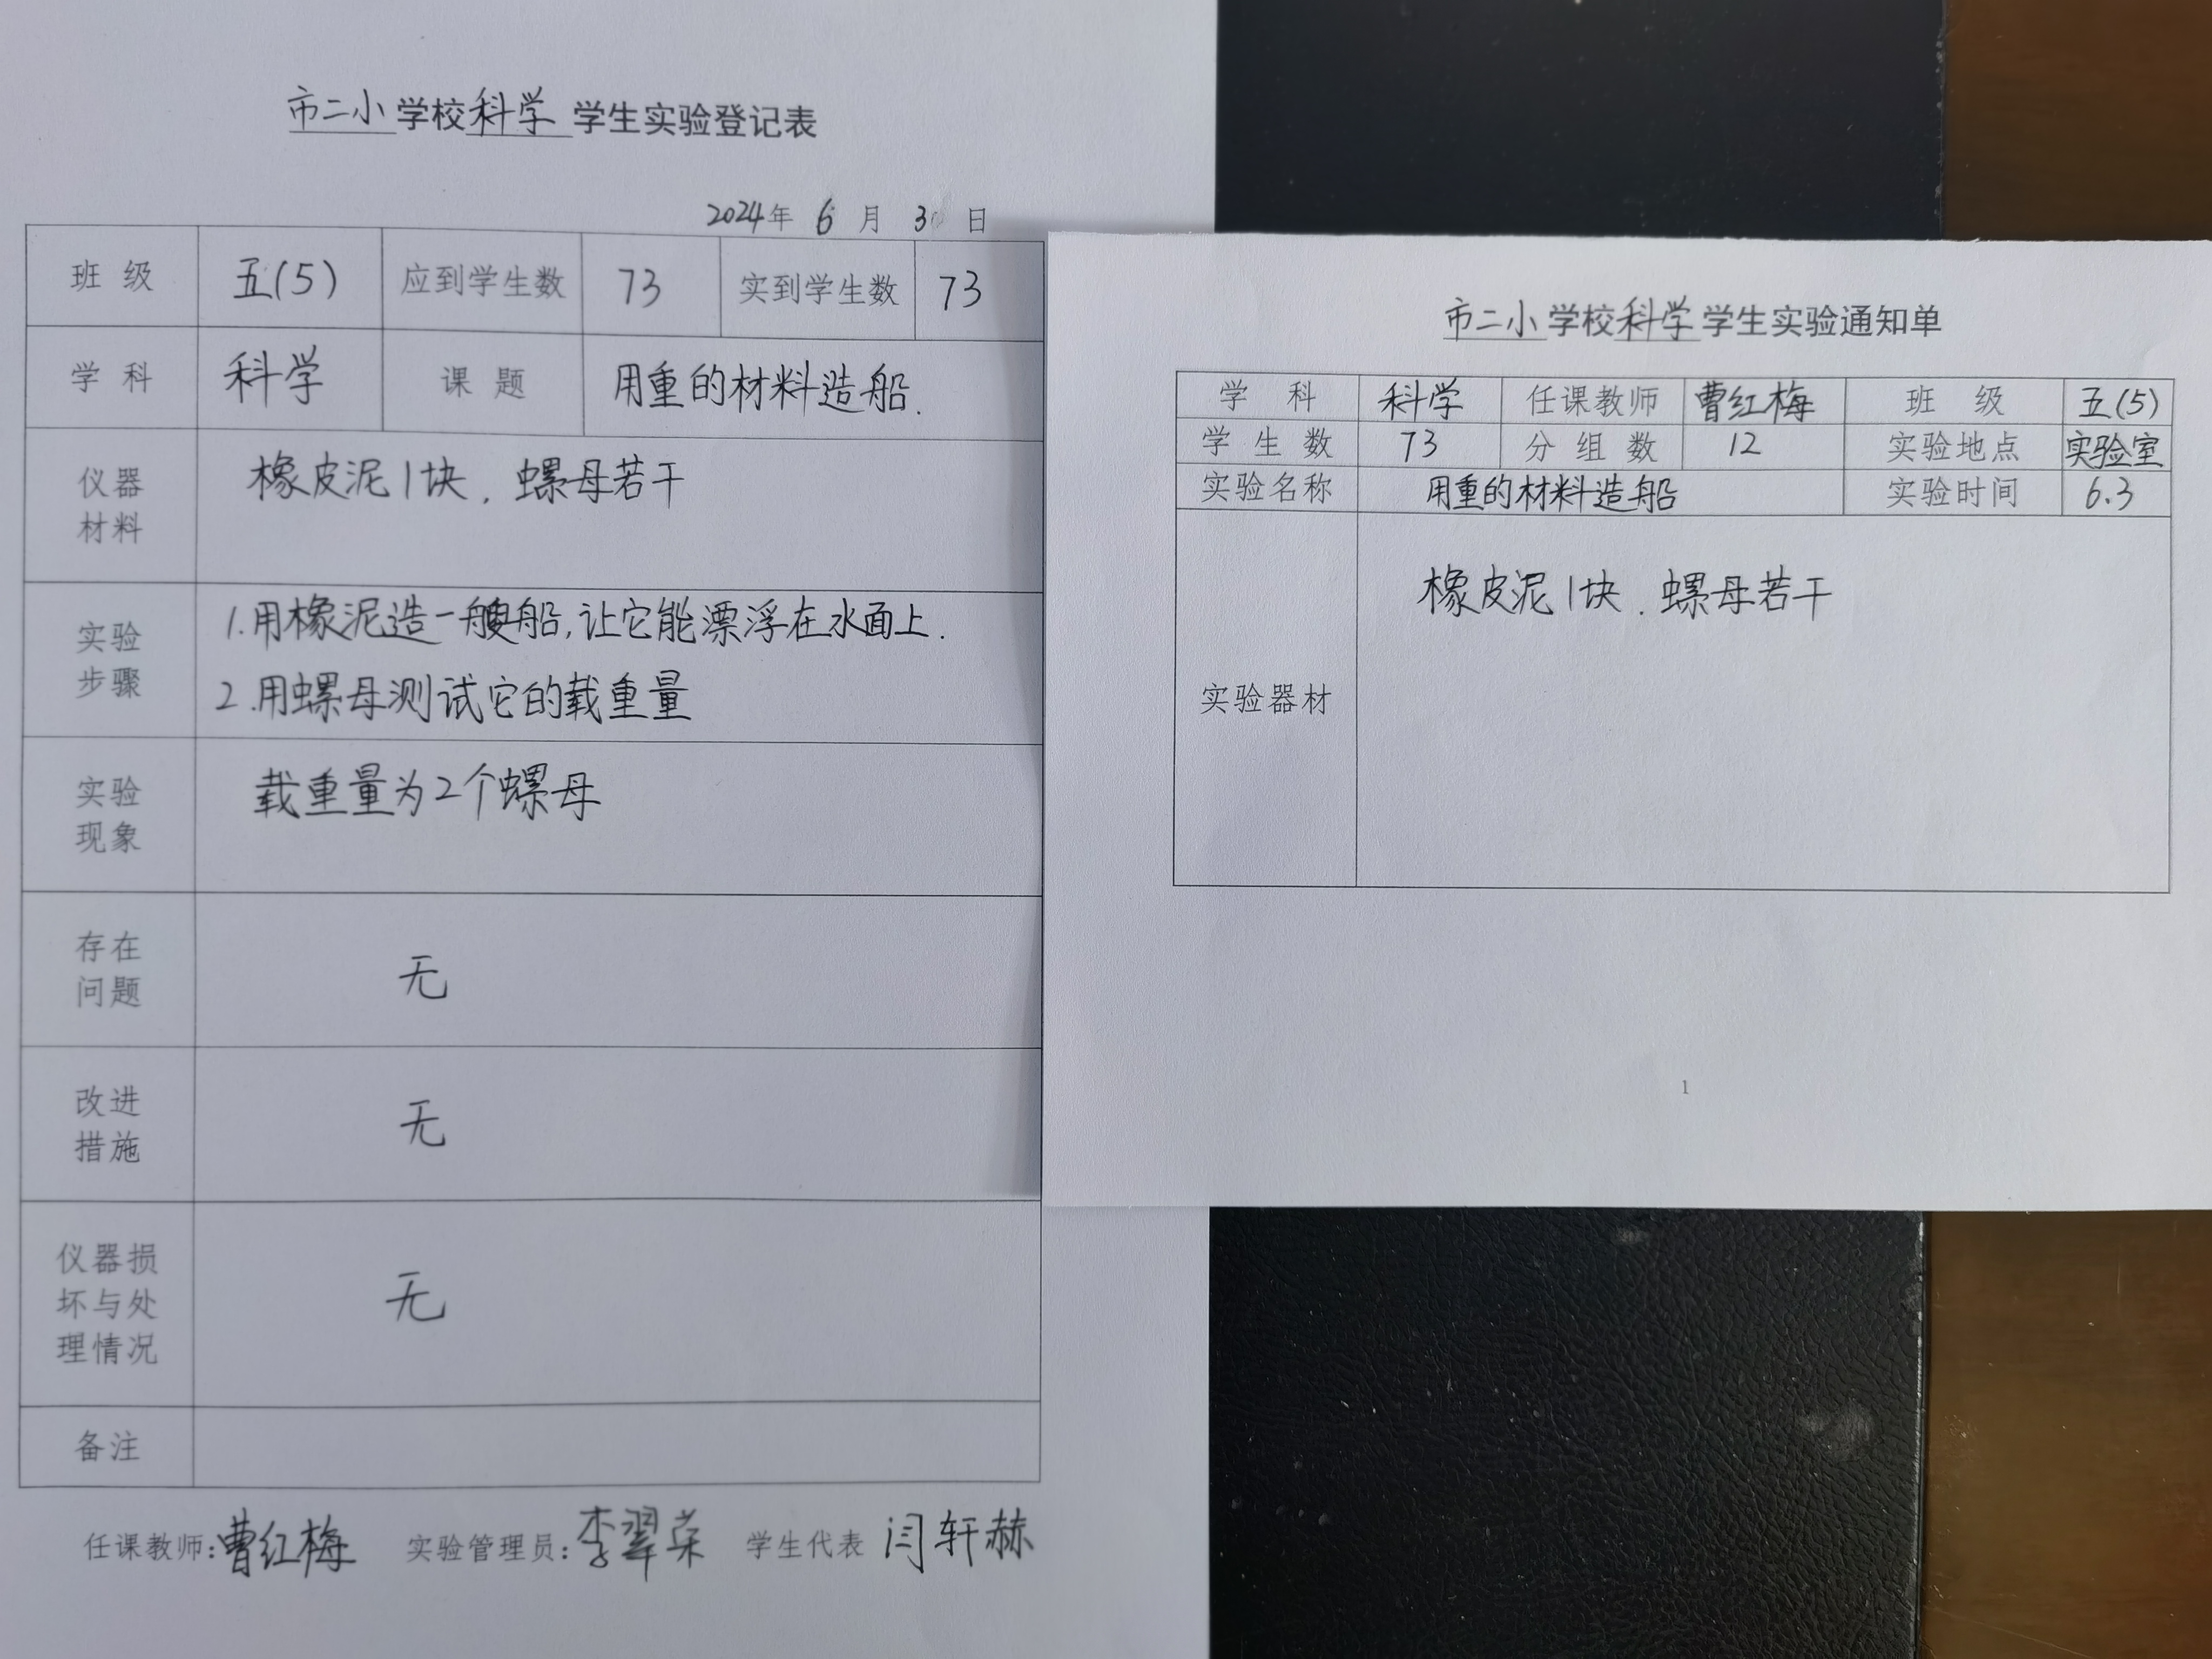 市二小学校科学学生实验登记表
2024年 6 月 3 日
班 级 五(5) 应到学生数 73 实到学生数 73
学 科 科学 课 题 用重的材料造船.
仪器
材料
橡皮泥1块, 螺母若干
实验
步骤
1.用橡泥造一艘船,让它能漂浮在水面上.
2.用螺母测试它的载重量
实验
现象
载重量为2个螺母
存在
问题
无
改进
措施
无
仪器损
坏与处
理情况
无
备注
任课教师:曹红梅 实验管理员:李翠荣 学生代表 闫轩赫
市二小学校科学学生实验通知单
学 科 科学 任课教师 曹红梅 班 级 五(5)
学 生 数 73 分 组 数 12 实验地点 实验室
实验名称 用重的材料造船 实验时间 6.3
实验器材
橡皮泥1块. 螺母若干
1